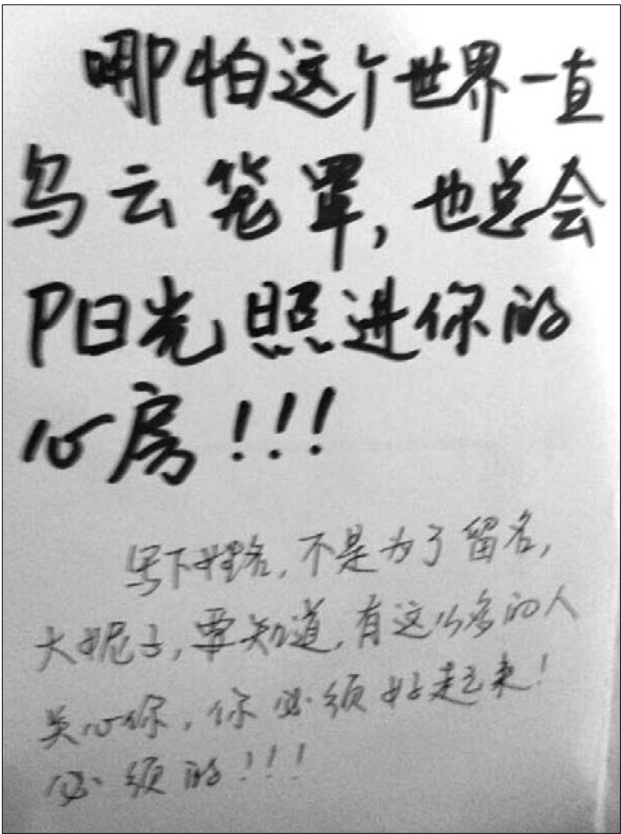 哪怕这个世界一直
乌云笼罩,也总会
阳光照进你的
心房!!!
写下姓名,不是为了留名,
大妮子,要知道,有这么多的人
关心你,你必须好起来!
必须的!!!